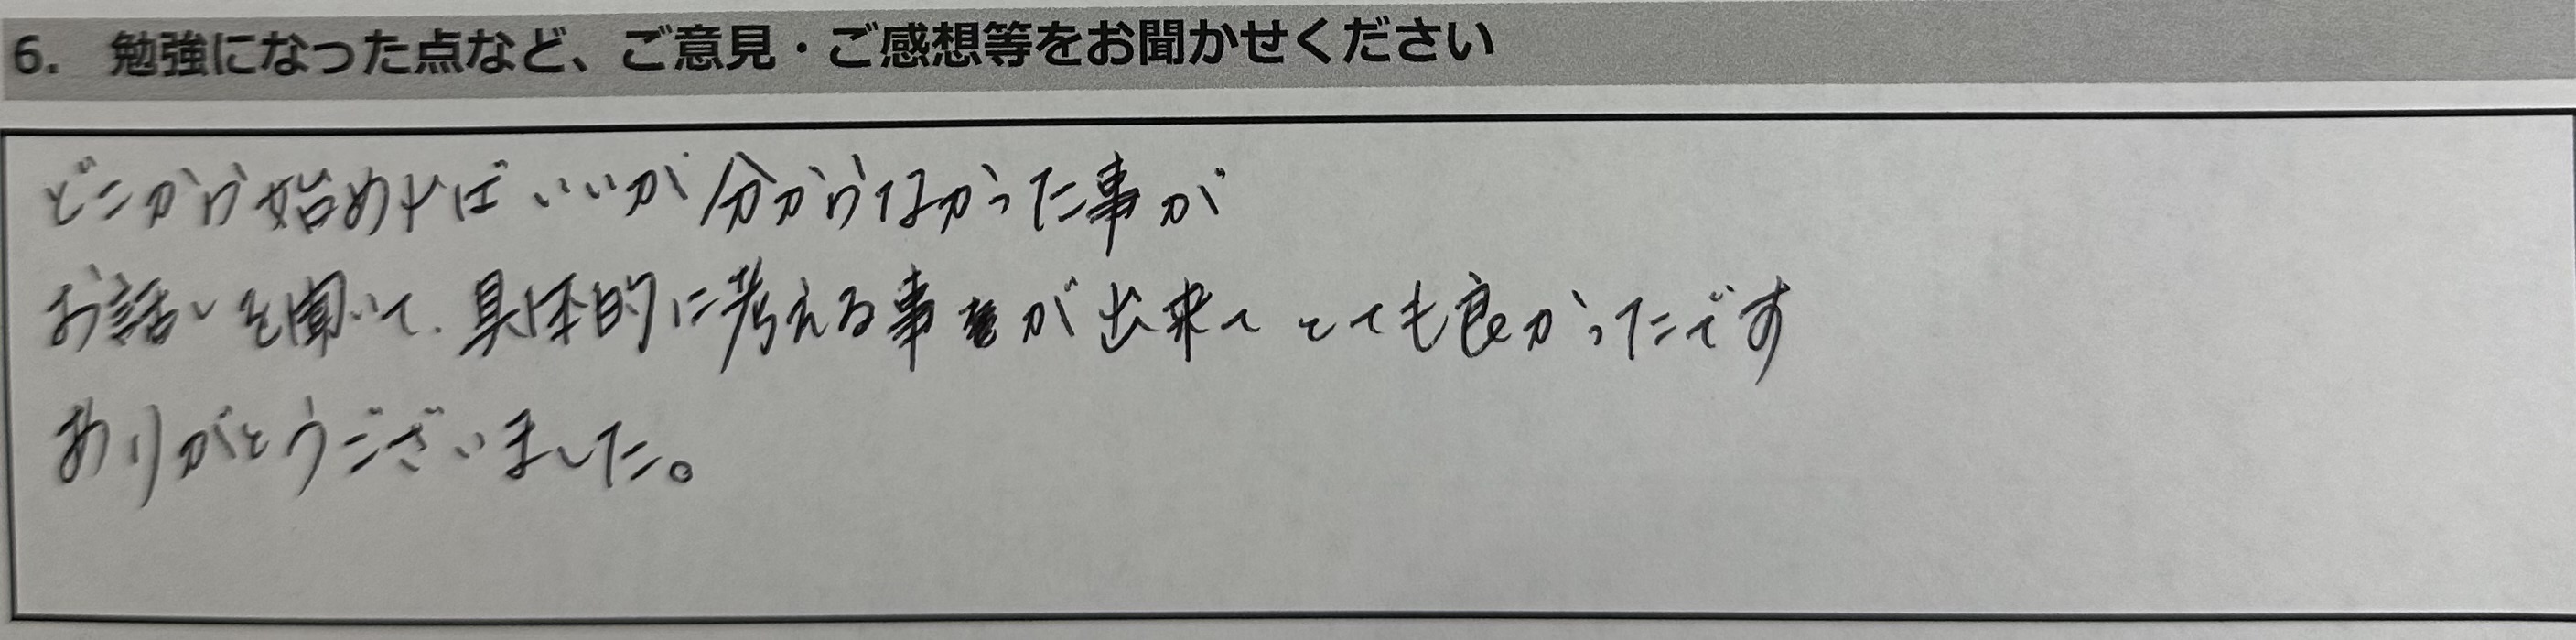 6. 勉強になった点など、ご意見・ご感想等をお聞かせください
どこから始めればいいか分からなかった事が
お話しを聞いて、具体的に考える事が出来てとても良かったです
ありがとうございました。